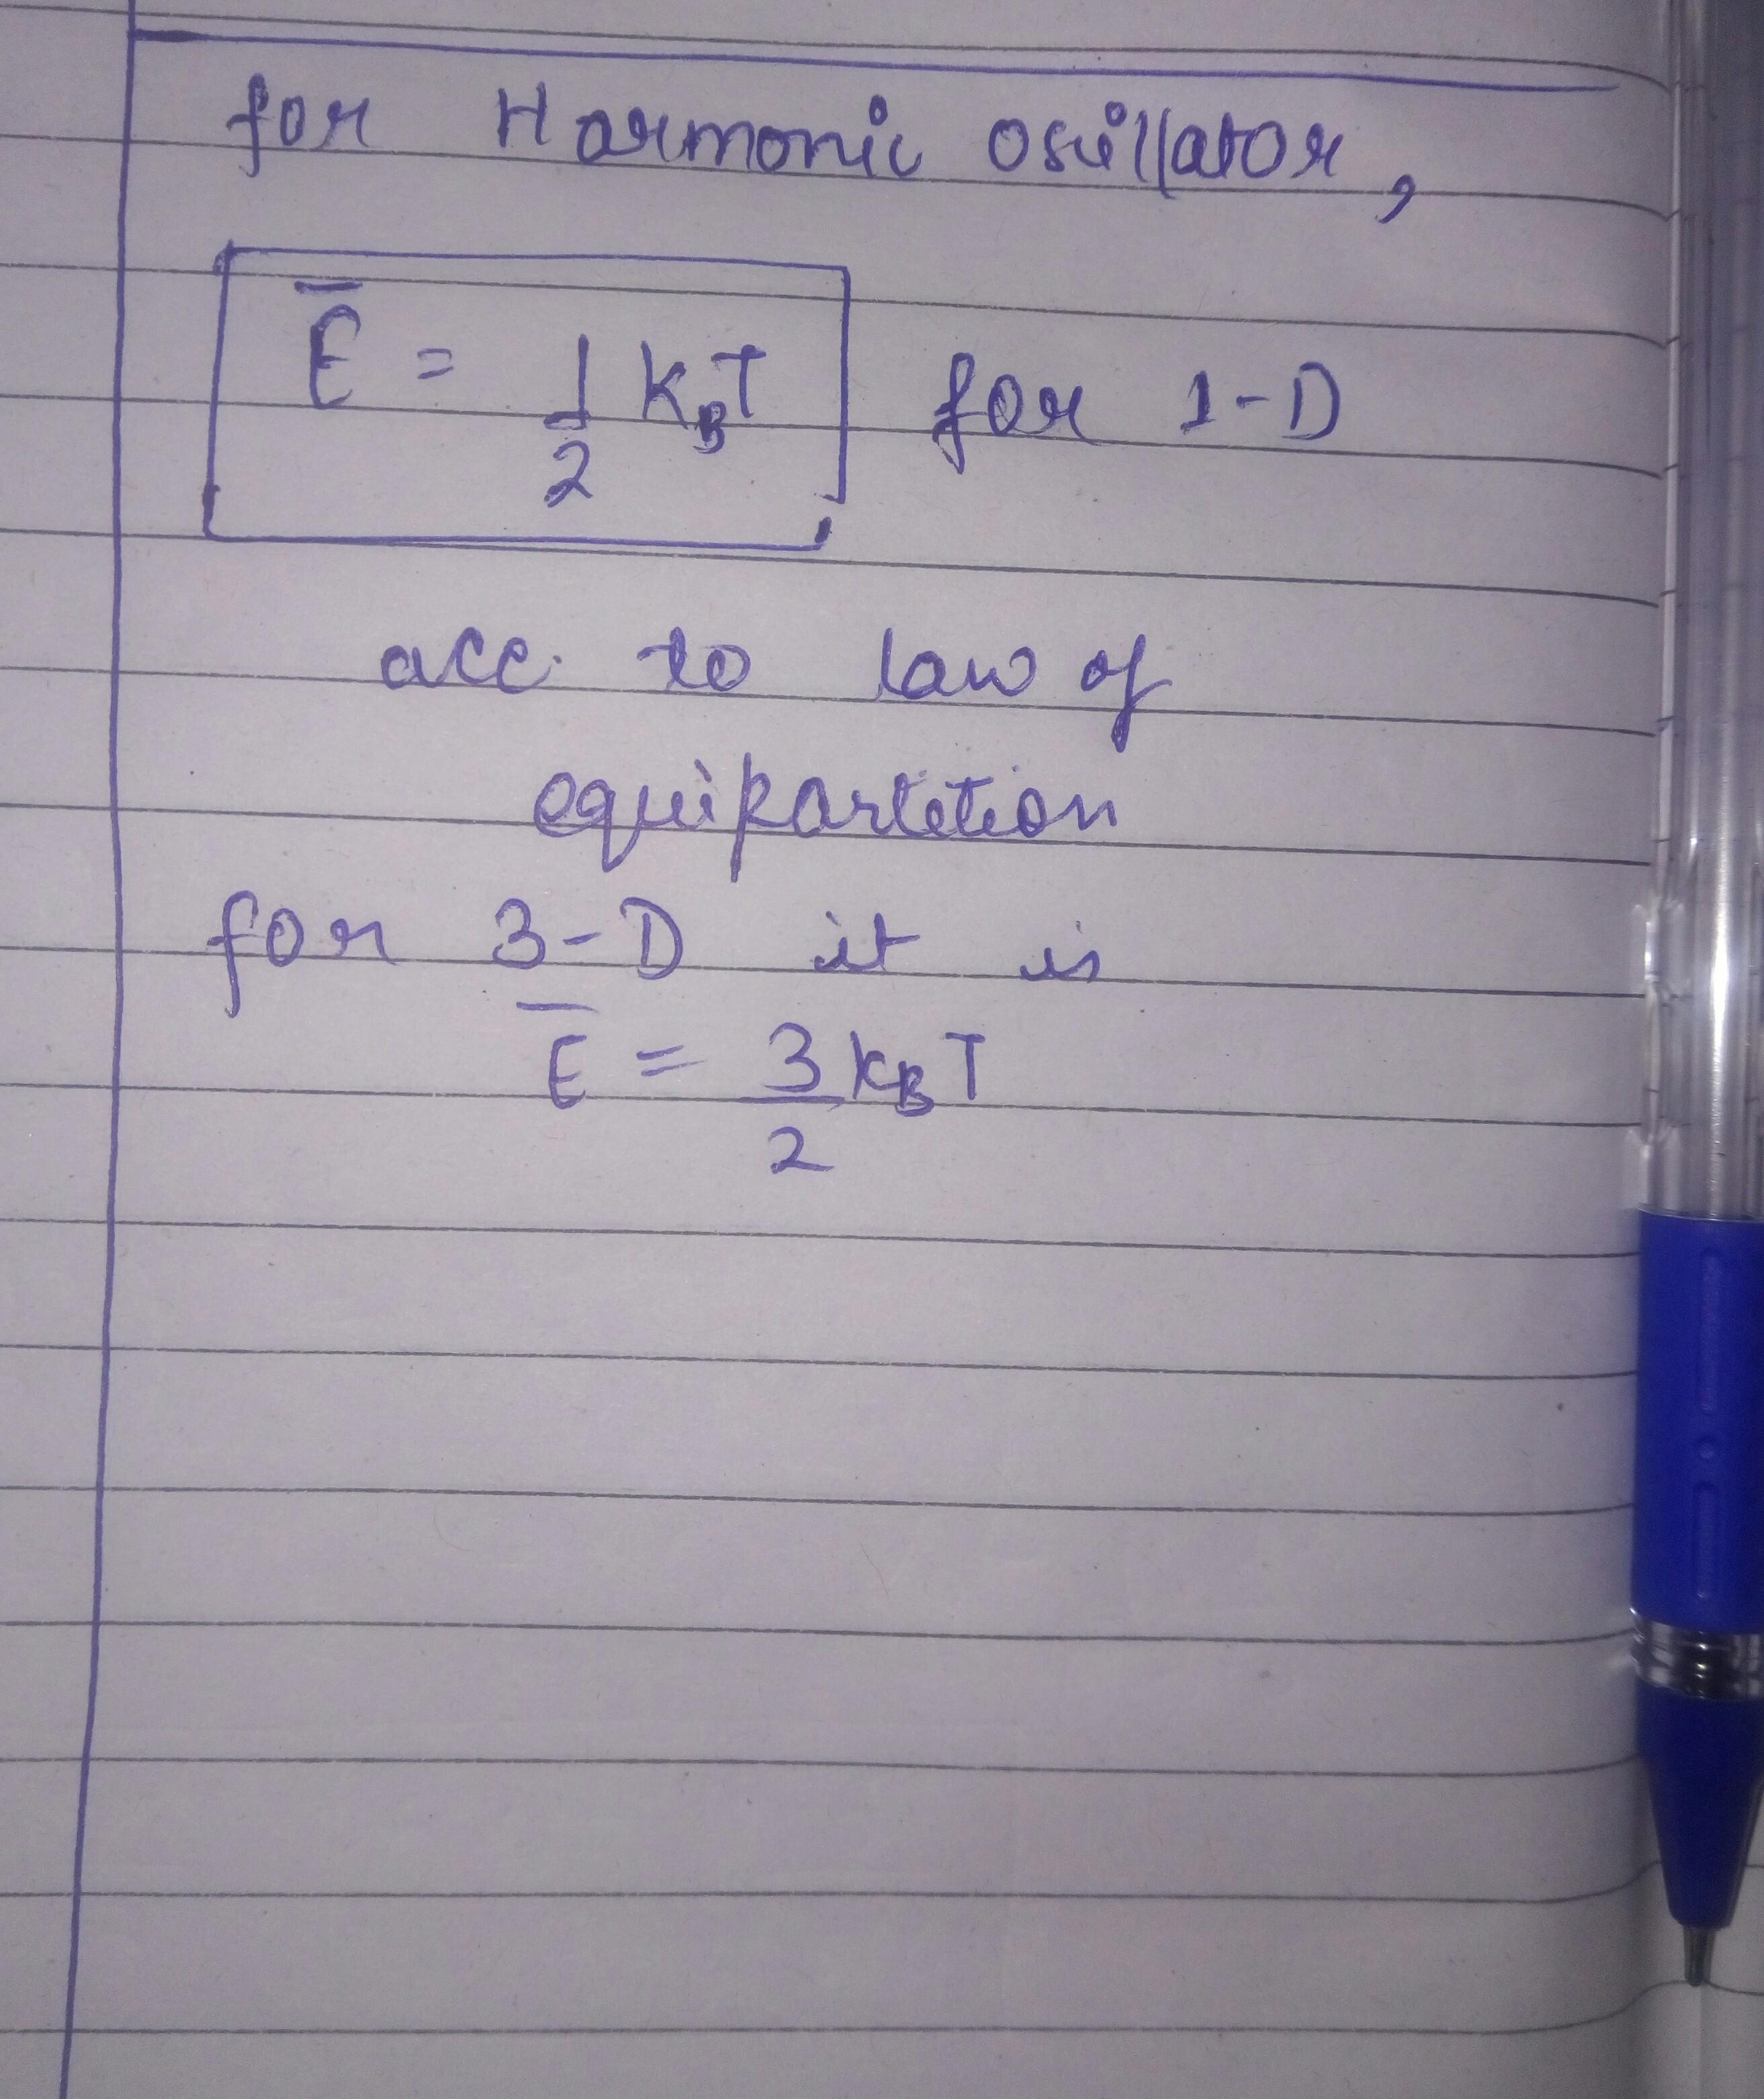 for Harmonic oscillator,
Ē = 1/2 K_BT for 1-D
acc. to law of
equipartition
for 3-D it is
Ē = 3/2 K_BT